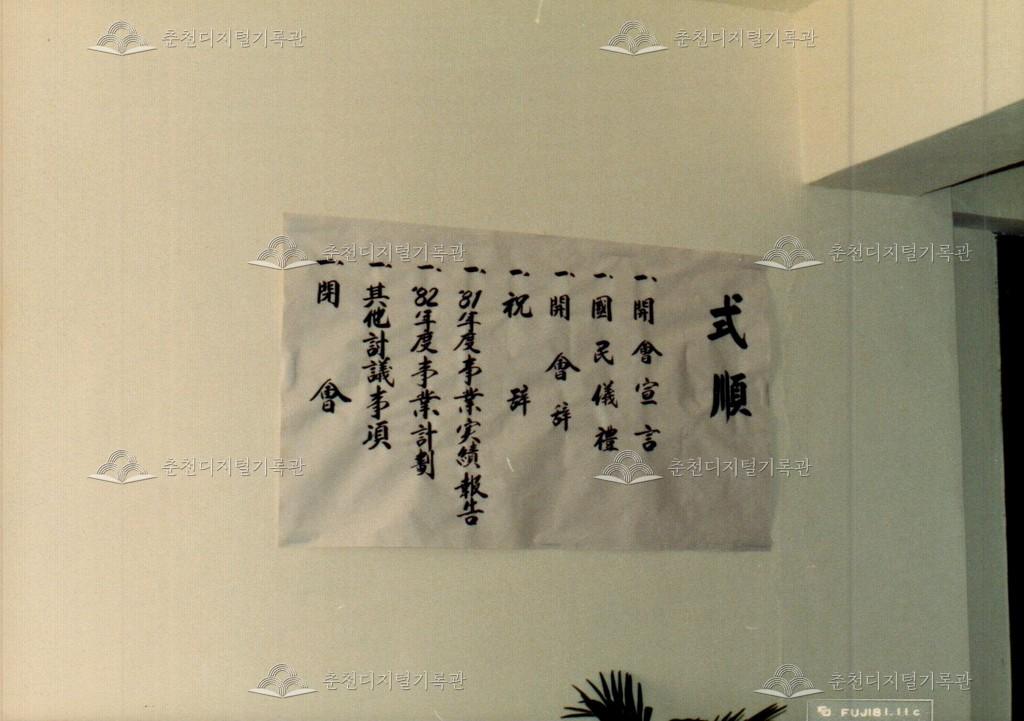 式順
一、開會宣言
一、國民儀禮
一、開會辞
一、祝辞
一、'81年度事業実績報告
一、'82年度事業計劃
一、其他討議事項
一、閉會
춘천디지털기록관
춘천디지털기록관
춘천디지털기록관
춘천디지털기록관
춘천디지털기록관
춘천디지털기록관
춘천디지털기록관
춘천디지털기록관
FUJI81.11c